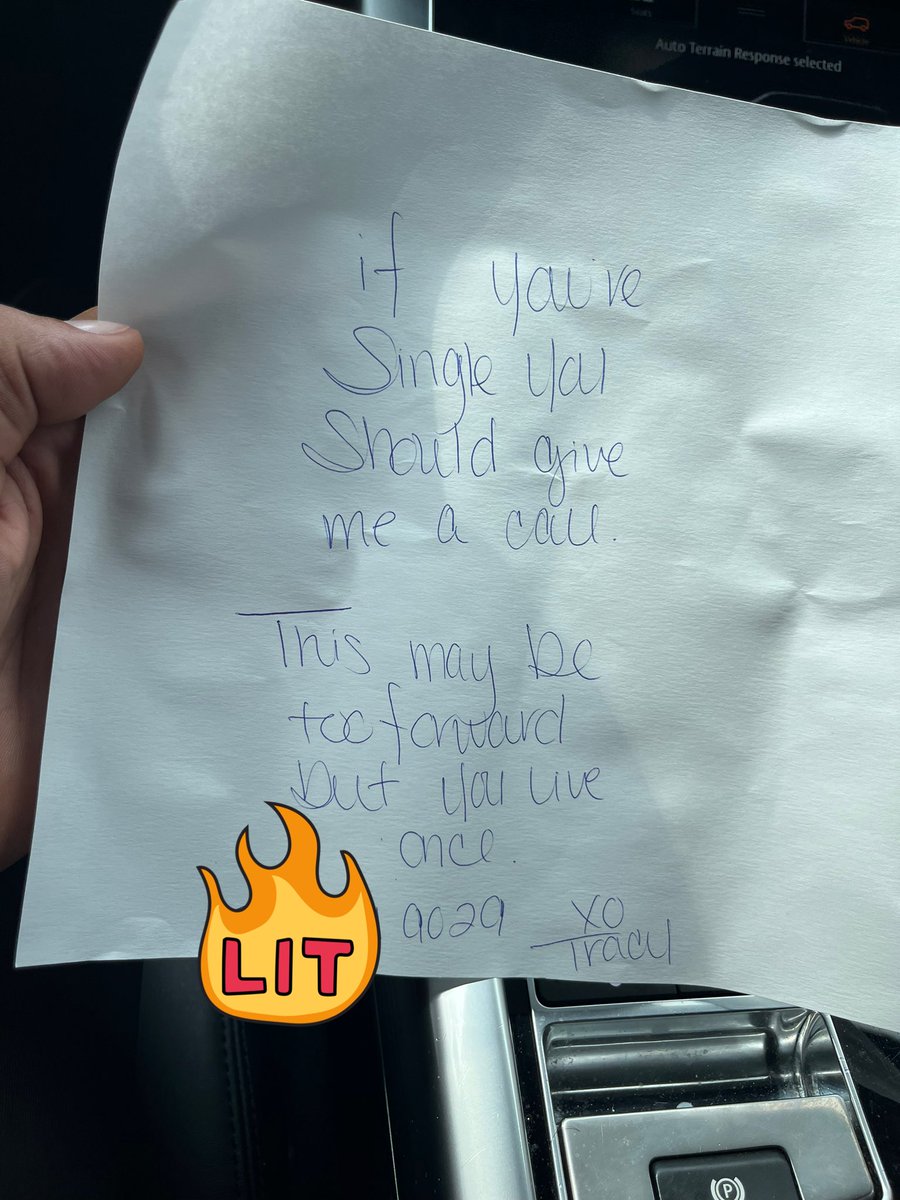 Seats
Vehicle
Auto Terrain Response selected
if you're
Single you
Should give
me a call.
This may be
too forward
but you live
once.
LIT
9029
xo
Tracy
P